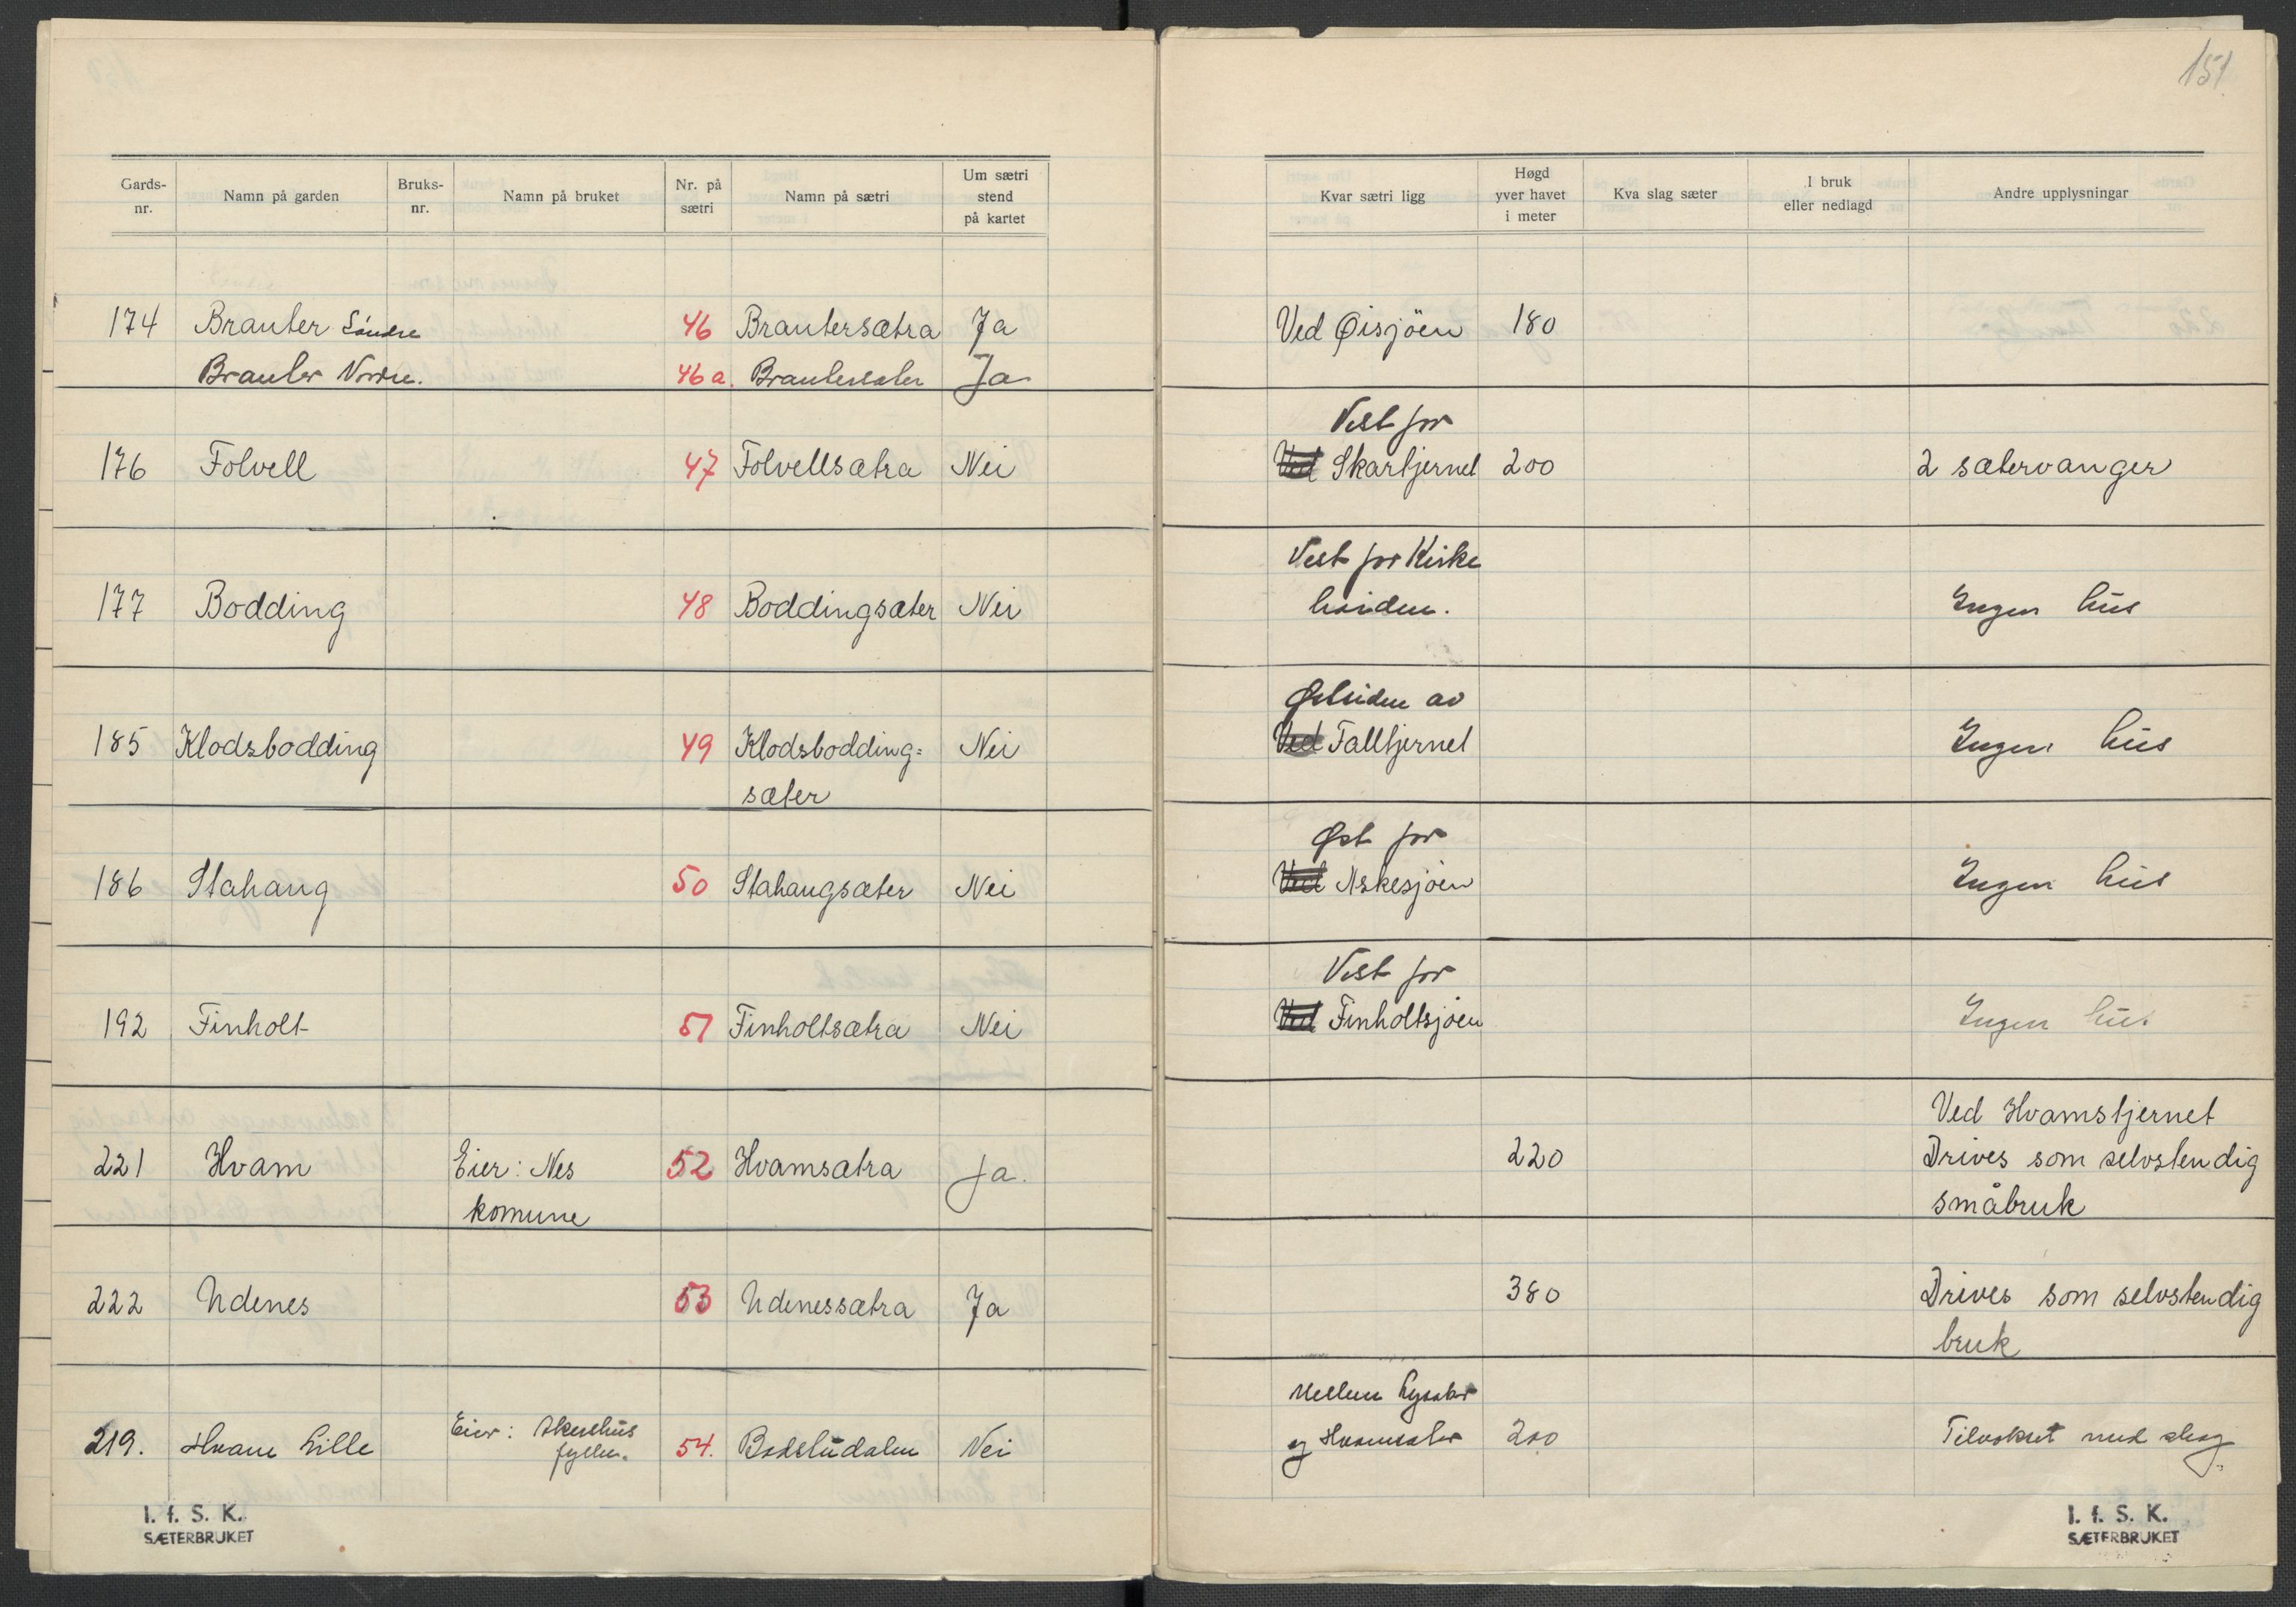 151
Gards-nr. Namn på garden Bruks-nr. Namn på bruket Nr. på sætri Namn på sætri Um sætri stend på kartet
Kvar sætri ligg Høgd yver havet i meter Kva slag sæter I bruk eller nedlagd Andre upplysningar
174 Brauter Søndre 46 Brautersætra Ja Ved Øisjöen 180
Brauter Nordre. 46a. Brautersæter Ja
Vest for
176 Folvell 47 Folvellsætra Nei Ved Skartjernet 200 2 sætervanger
Vest for Kirke
177 Bodding 48 Boddingsæter Nei Ingen hus
Østsiden av
185 Klodsbodding 49 Klodsbodding= Nei Ved Falltjernet Ingen hus
sæter
Øst for
186 Stahaug 50 Stahaugsæter Nei Ved Askesjøen Ingen hus
Vest for
192 Finholt 51 Finholtsætra Nei Ved Finholtsjøen Ingen hus
Ved Hvamstjernet
221 Hvam Eier: Nes 52 Hvamsætra Ja. 220 Drives som selvstendig
komune småbruk
222 Udenes 53 Udenessætra Ja 380 Drives som selvstendig
bruk
Mellem
219. Hvam Lille Eier: Akershus 54. Badstudalen Nei og Hvamsæter 200 Tilvokset med skog
fylke.
I. f. S. K.
SÆTERBRUKET
I. f. S. K.
SÆTERBRUKET